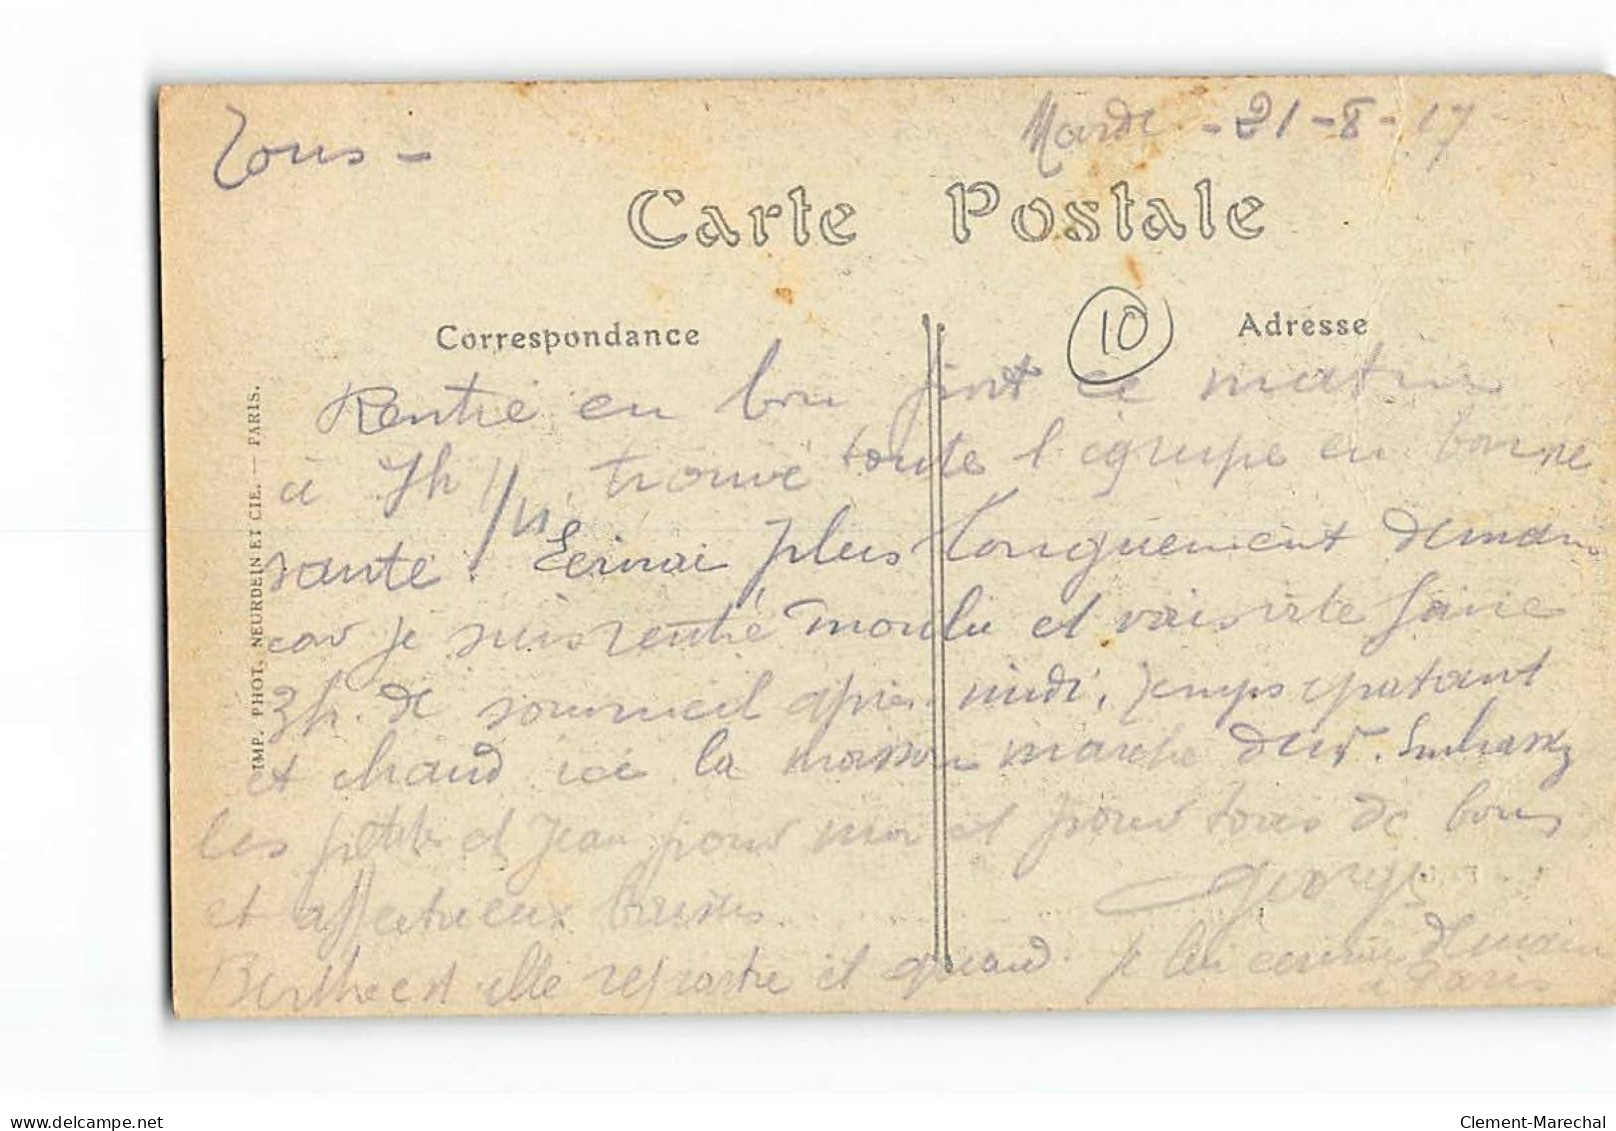 Tous -
Mardi - 21-8-17
Carte Postale
Correspondance
10
Adresse
Rentré en bon port ce matin
à 7h 1/2 trouvé toute l'équipe en bonne
santé. Ecrirai plus longuement demain
car je suis rentré moulu et vais vite faire
3h. de sommeil après-midi. Temps épatant
et chaud ici la maison marche dur. Embrassez
les petits et Jean pour moi et pour tous de bons
et affectueux baisers.
Georges
Berthe est elle repartie et quand. je lui demain
à Paris
IMP. PHOT. NEURDEIN ET CIE. — PARIS.
www.delcampe.net
Clement-Marechal